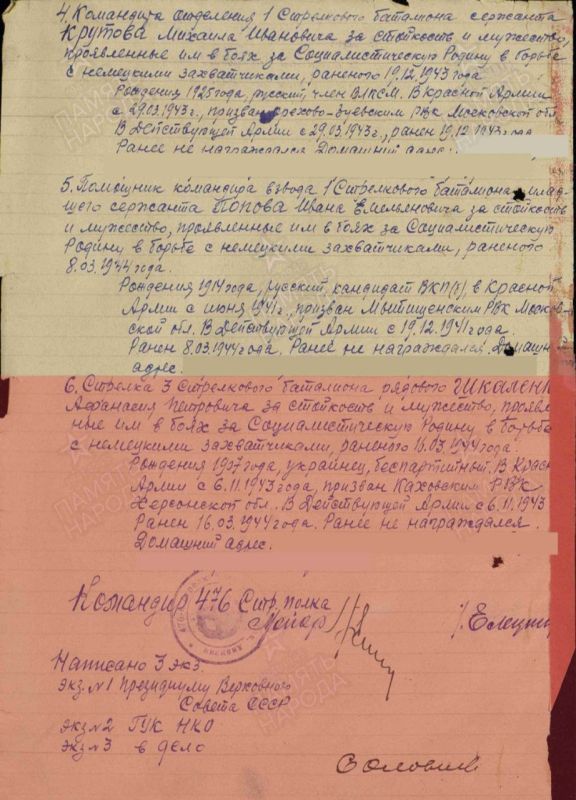 4. Командира отделения 1 Стрелкового батальона сержанта
Крутова Михаила Ивановича за стойкость и мужество,
проявленные им в боях за Социалистическую Родину в борьбе
с немецкими захватчиками, раненого 19.12.1943 года
Рождения 1925 года, русский, член ВЛКСМ. В Красной Армии
с 29.03.1943 г., призван Орехово-Зуевским РВК Московской обл.
В Действующей Армии с 29.03.1943 г., ранен 19.12.1943 года
Ранее не награждался. Домашний адрес.
5. Помощник командира взвода 1 Стрелкового батальона млад-
щего сержанта Попова Ивана Емельяновича за стойкость
и мужество, проявленные им в боях за Социалистическую
Родину в борьбе с немецкими захватчиками, раненого
8.03.1944 года.
Рождения 1914 года, русский, кандидат ВКП(б), в Красной
Армии с июня 1941 г., призван Мытищенским РВК Москов-
ской обл. В Действующей Армии с 19.12.1941 года.
Ранен 8.03.1944 года. Ранее не награждался. Домашн
адрес.
6. Стрелка 3 Стрелкового батальона рядового Шкаленк
Афанасия Петровича за стойкость и мужество, проявл
ные им в боях за Социалистическую Родину в борьбе
с немецкими захватчиками, раненого 16.03.1944 года.
Рождения 1907 года, украинец, беспартийный. В Красн
Армии с 6.11.1943 года, призван Каховским РВК
Херсонской обл. В Действующей Армии с 6.11.1943
Ранен 16.03.1944 года. Ранее не награждался.
Домашний адрес.
Командир 476 Стр. полка
Майор /Елецки
Написано 3 экз.
экз. №1 Президиуму Верховного
Совета СССР
экз №2 ГУК НКО
экз №3 в дело
ПАМЯТЬ
НАРОДА